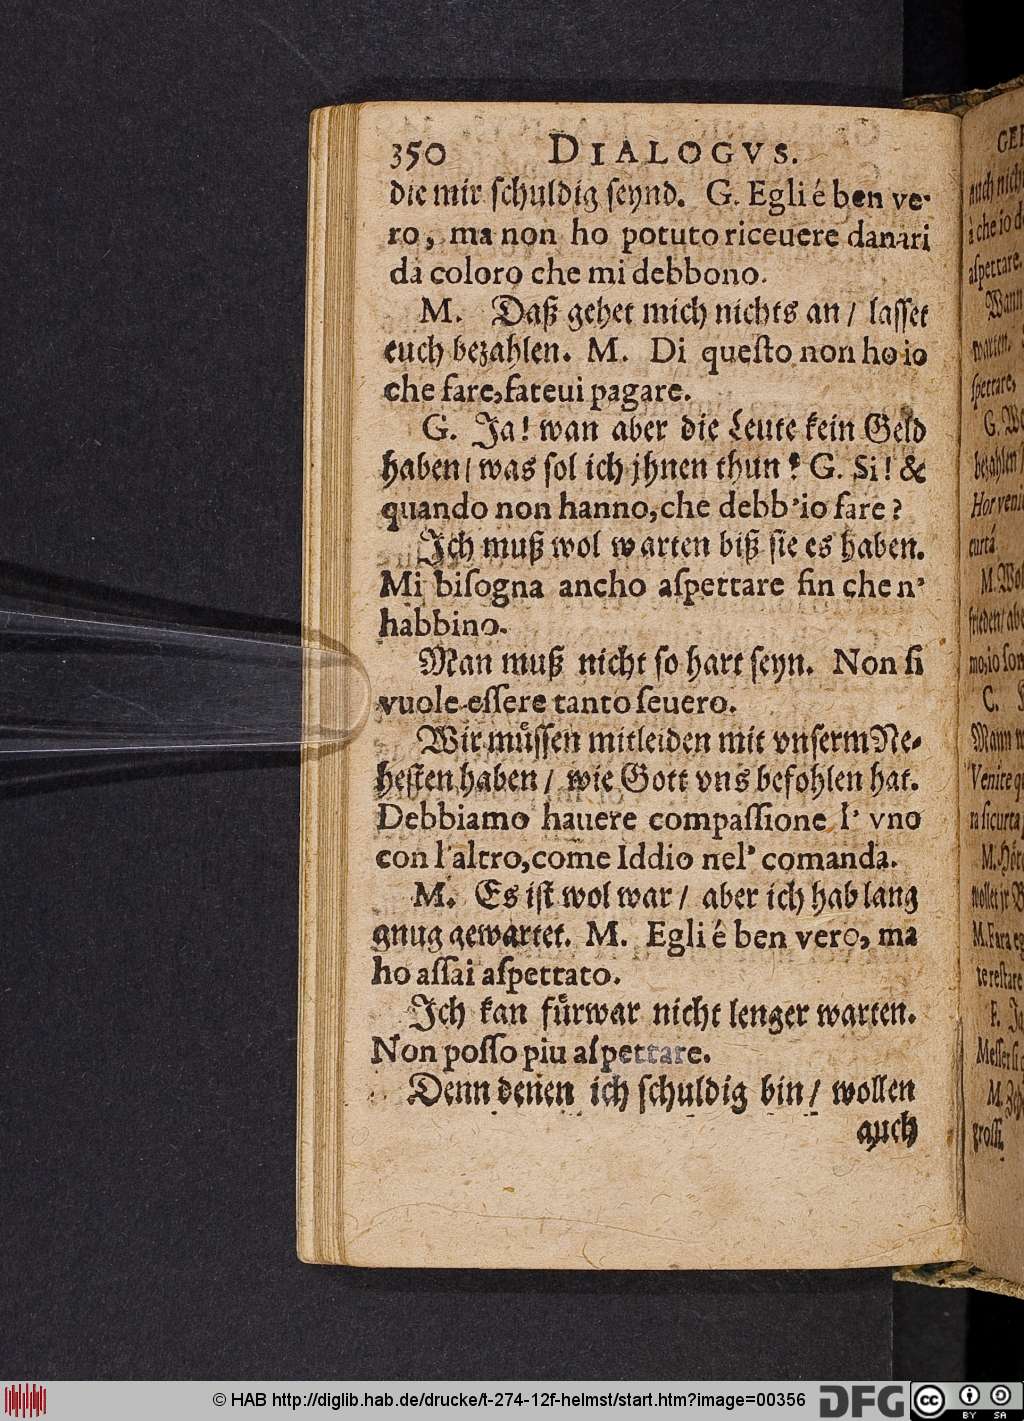 350 DIALOGVS.
die mir ſchuldig ſeynd. G. Egli é ben ve-
ro, ma non ho potuto riceuere danari
da coloro che mi debbono.
M. Daß gehet mich nichts an / laſſet
euch bezahlen. M. Di queſto non ho io
che fare, fateui pagare.
G. Ja! wan aber die Leute kein Geld
haben / was ſol ich jhnen thun? G. Si! &
quando non hanno, che debb'io fare?
Ich muß wol warten biß ſie es haben.
Mi biſogna ancho aſpettare fin che n'
habbino.
Man muß nicht ſo hart ſeyn. Non ſi
vuole eſſere tanto ſeuero.
Wir muͤſſen mitleiden mit vnſerm Ne-
heſten haben / wie Gott vns befohlen hat.
Debbiamo hauere compaſſione l' vno
con l'altro, come Iddio nel' comanda.
M. Es iſt wol war / aber ich hab lang
gnug gewartet. M. Egli é ben vero, ma
ho aſſai aſpettato.
Ich kan fuͤrwar nicht lenger warten.
Non poſſo piu aſpettare.
Denn denen ich ſchuldig bin / wollen
auch
auch nich
à che io d
aſpettare.
Wann
warten.
ſpettare,
G. We
bezahlen /
Hor veni
curtá
M. Wol
frieden / abe
mo, io ſon
C.
Mann
Venite q
ra ſicurta
M. Hoͤr
wollet jr B
M. Fara eg
te reſtare
F. Ja
Meſſer ſi
M.
groſſi,
© HAB http://diglib.hab.de/drucke/t-274-12f-helmst/start.htm?image=00356
DFG
cc BY SA